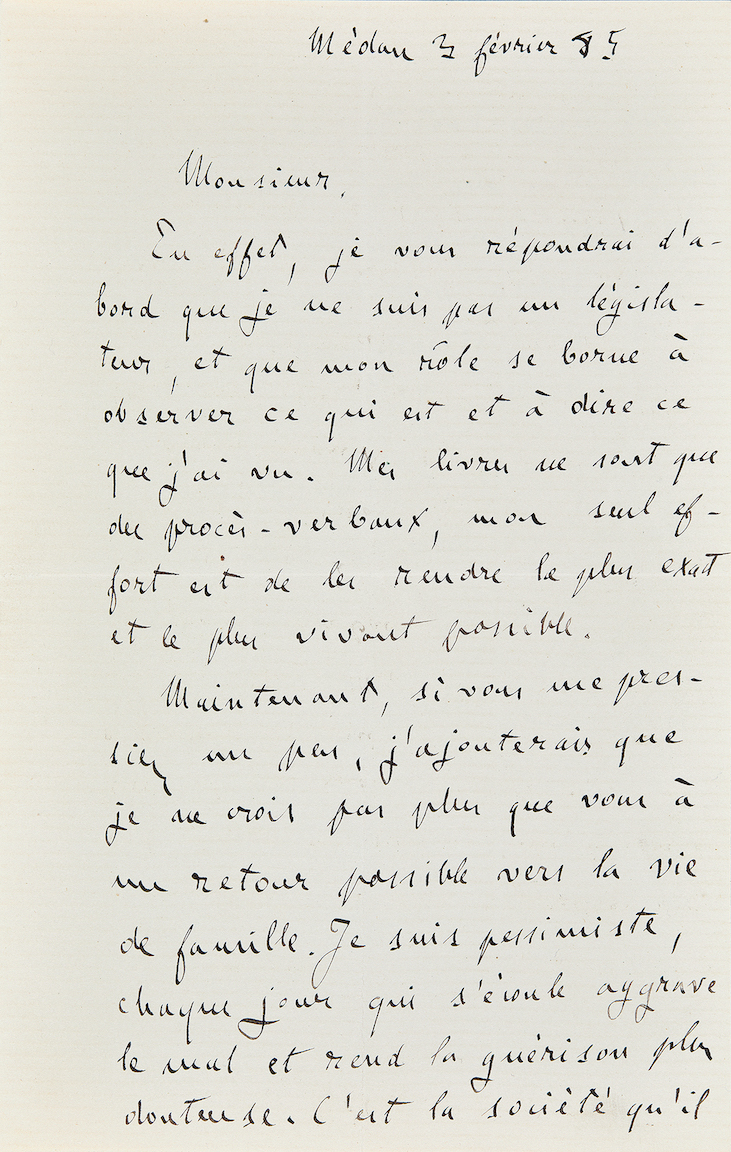 Médan 3 février 85
Monsieur,
En effet, je vous répondrai d'a-
bord que je ne suis pas un législa-
teur, et que mon rôle se borne à
observer ce qui est et à dire ce
que j'ai vu. Mes livres ne sont que
des procès-verbaux, mon seul ef-
fort est de les rendre le plus exact
et le plus vivant possible.
Maintenant, si vous me pres-
siez un peu, j'ajouterais que
je ne crois pas plus que vous à
un retour possible vers la vie
de famille. Je suis pessimiste,
chaque jour qui s'écoule aggrave
le mal et rend la guérison plus
douteuse. C'est la société qu'il